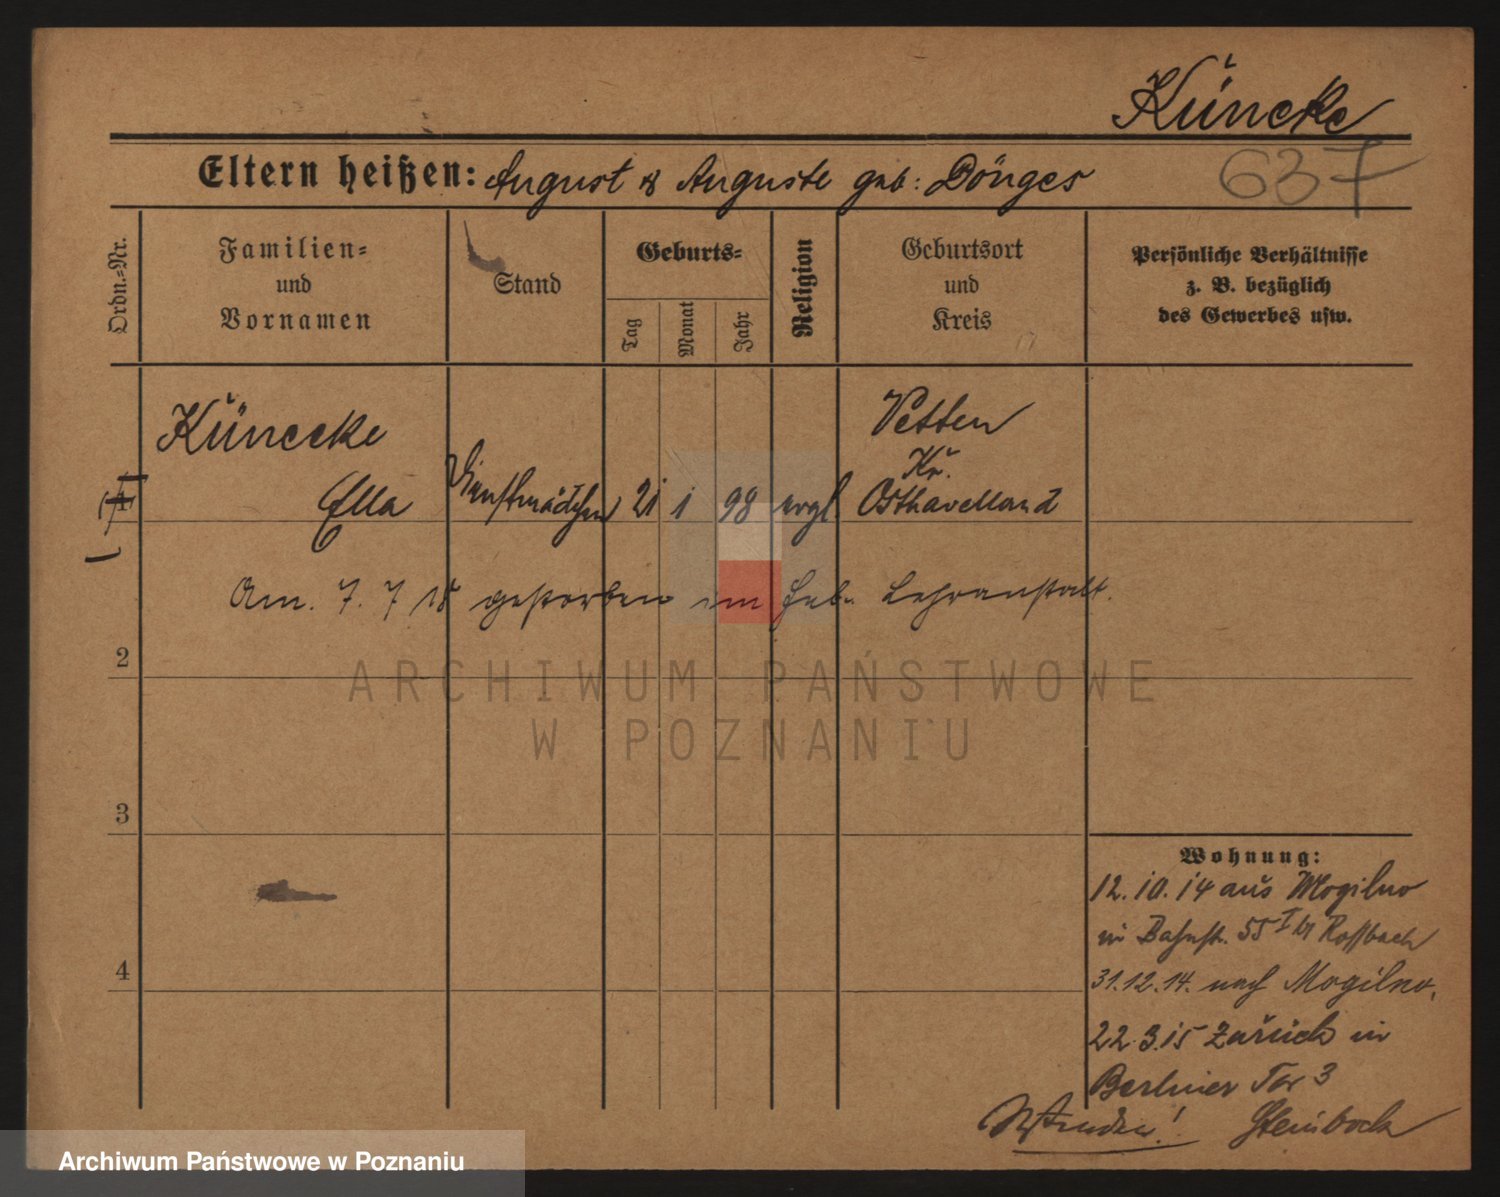 Künecke
637
Eltern heißen: August & Auguste geb: Dönges
Ordn.-Nr.
Familien-
und
Vornamen
Stand
Geburts-
Tag
Monat
Jahr
Religion
Geburtsort
und
Kreis
Persönliche Verhältnisse
z. B. bezüglich
des Gewerbes usw.
Künecke
Ella
Dienstmädchen
21
1
98
evgl.
Vetten
Kr.
Osthavelland
1
Am. 7. 7 18 gestorben im Heb. Lehranstalt.
2
ARCHIWUM PAŃSTWOWE
W POZNANIU
3
4
Wohnung:
12.10.14 aus Mogilno
in Bahnst. 55 I b/ Roßbach
31.12.14. nach Mogilno.
22.3.15 zurück in
Berliner Tor 3
Steinbock
Wenden!
Archiwum Państwowe w Poznaniu